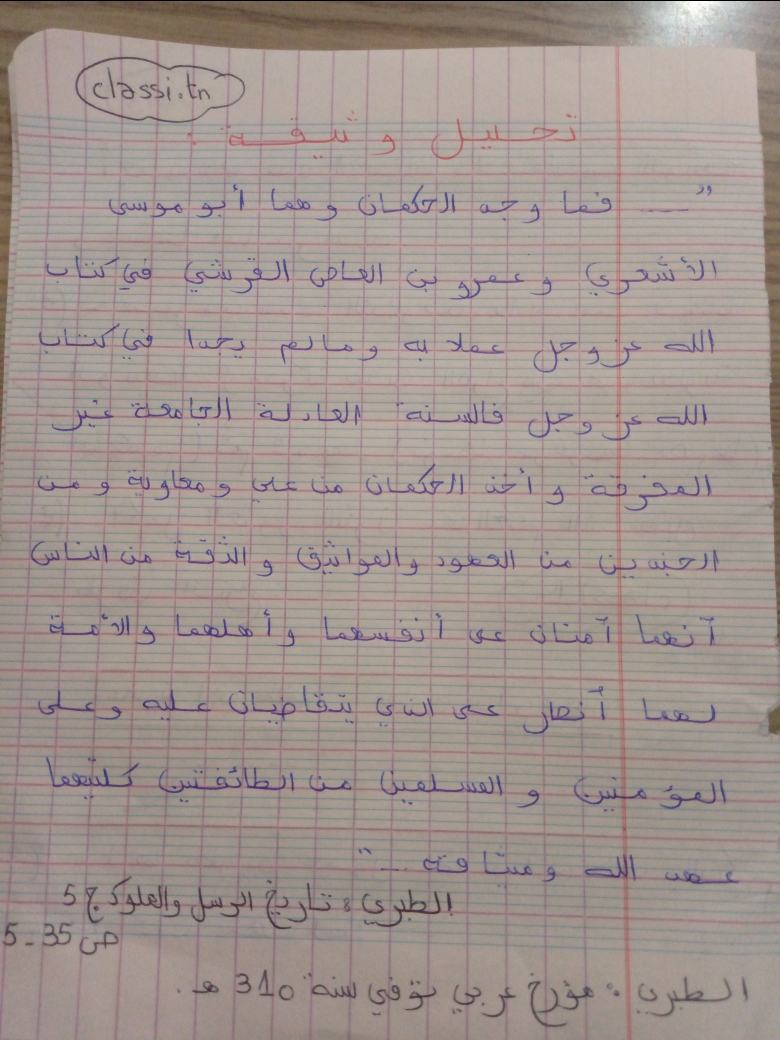 classi.tn
تحليل وثيقة :
" ... فما وجد الحكمان وهما أبو موسى
الأشعري وعمرو بن العاص القرشي في كتاب
الله عز وجل عملا به ومالم يجدا في كتاب
الله عز وجل فالسنة العادلة الجامعة غير
المفرقة وأخذ الحكمان من علي ومعاوية ومن
الجندين من العهود والمواثيق والثقة من الناس
آنهما آمنان على أنفسهما وأهلهما والأمة
لهما أنصار على الذي يتقاضيان عليه وعلى
المؤمنين والمسلمين من الطائفتين كلتيهما
عهد الله وميثاقه ... "
الطبري : تاريخ الرسل والملوك ج 5
ص 35 - 5
الطبري : مؤرخ عربي توفي سنة 310 هـ .